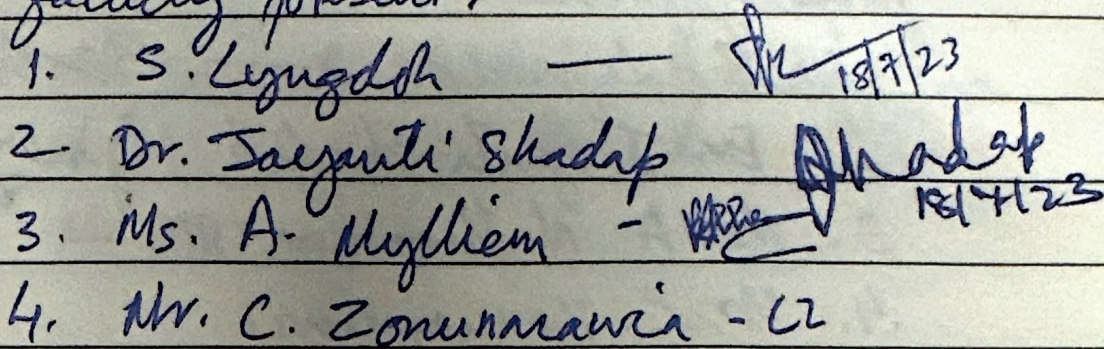 1. S. Lyngdoh — 18/7/23
2. Dr. Jayanti Shadap Shadap 18/7/23
3. Ms. A. Mylliem -
4. Mr. C. Zonunmawia - CZ